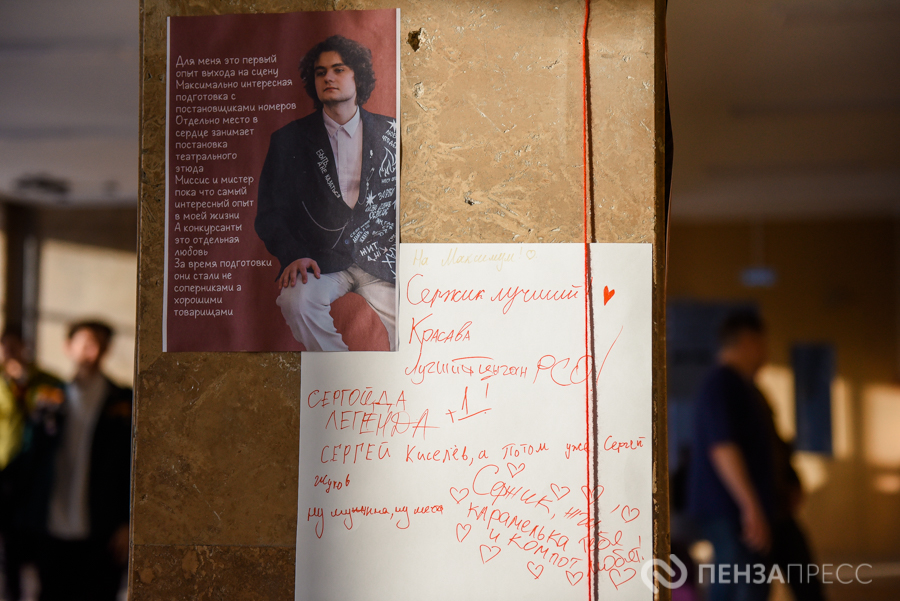 Для меня это первый
опыт выхода на сцену
Максимально интересная
подготовка с
постановщиками номеров
Отдельно место в
сердце занимает
постановка
театрального
этюда
Миссис и мистер
пока что самый
интересный опыт
в моей жизни
А конкурсанты
это отдельная
любовь
За время подготовки
они стали не
соперниками а
хорошими
товарищами
БЫТЬ
НЕ КАЗАТЬСЯ
ЖИТЬ
На Максимум!
Сержик лучший
Красава
Лучший РСО
СЕРГОЙДА
ЛЕГЕНДА +1!
СЕРГЕЙ Киселёв, а потом уже Сергей
Жуков
ну мужчина, ну мечта
Сержик,
карамелька тебя
и компот любят!
ПЕНЗАПРЕСС